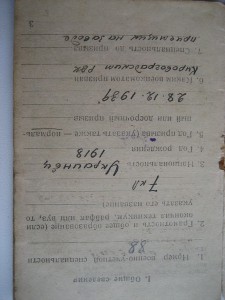 I. Общие сведения
1. Номер военно-учетной специальности
88
2. Грамотность и общее образование (если
окончил техникум, рабфак или вуз, то
указать его название)
7 кл
3. Национальность Украинец
4. Год рождения 1918
5. Год призыва (указать также — нормальный
или досрочный призыв
28.12.1939
6. Каким военкоматом призван
Кировоградским РВК
7. Специальность до призыва
приемщик на заводе
3